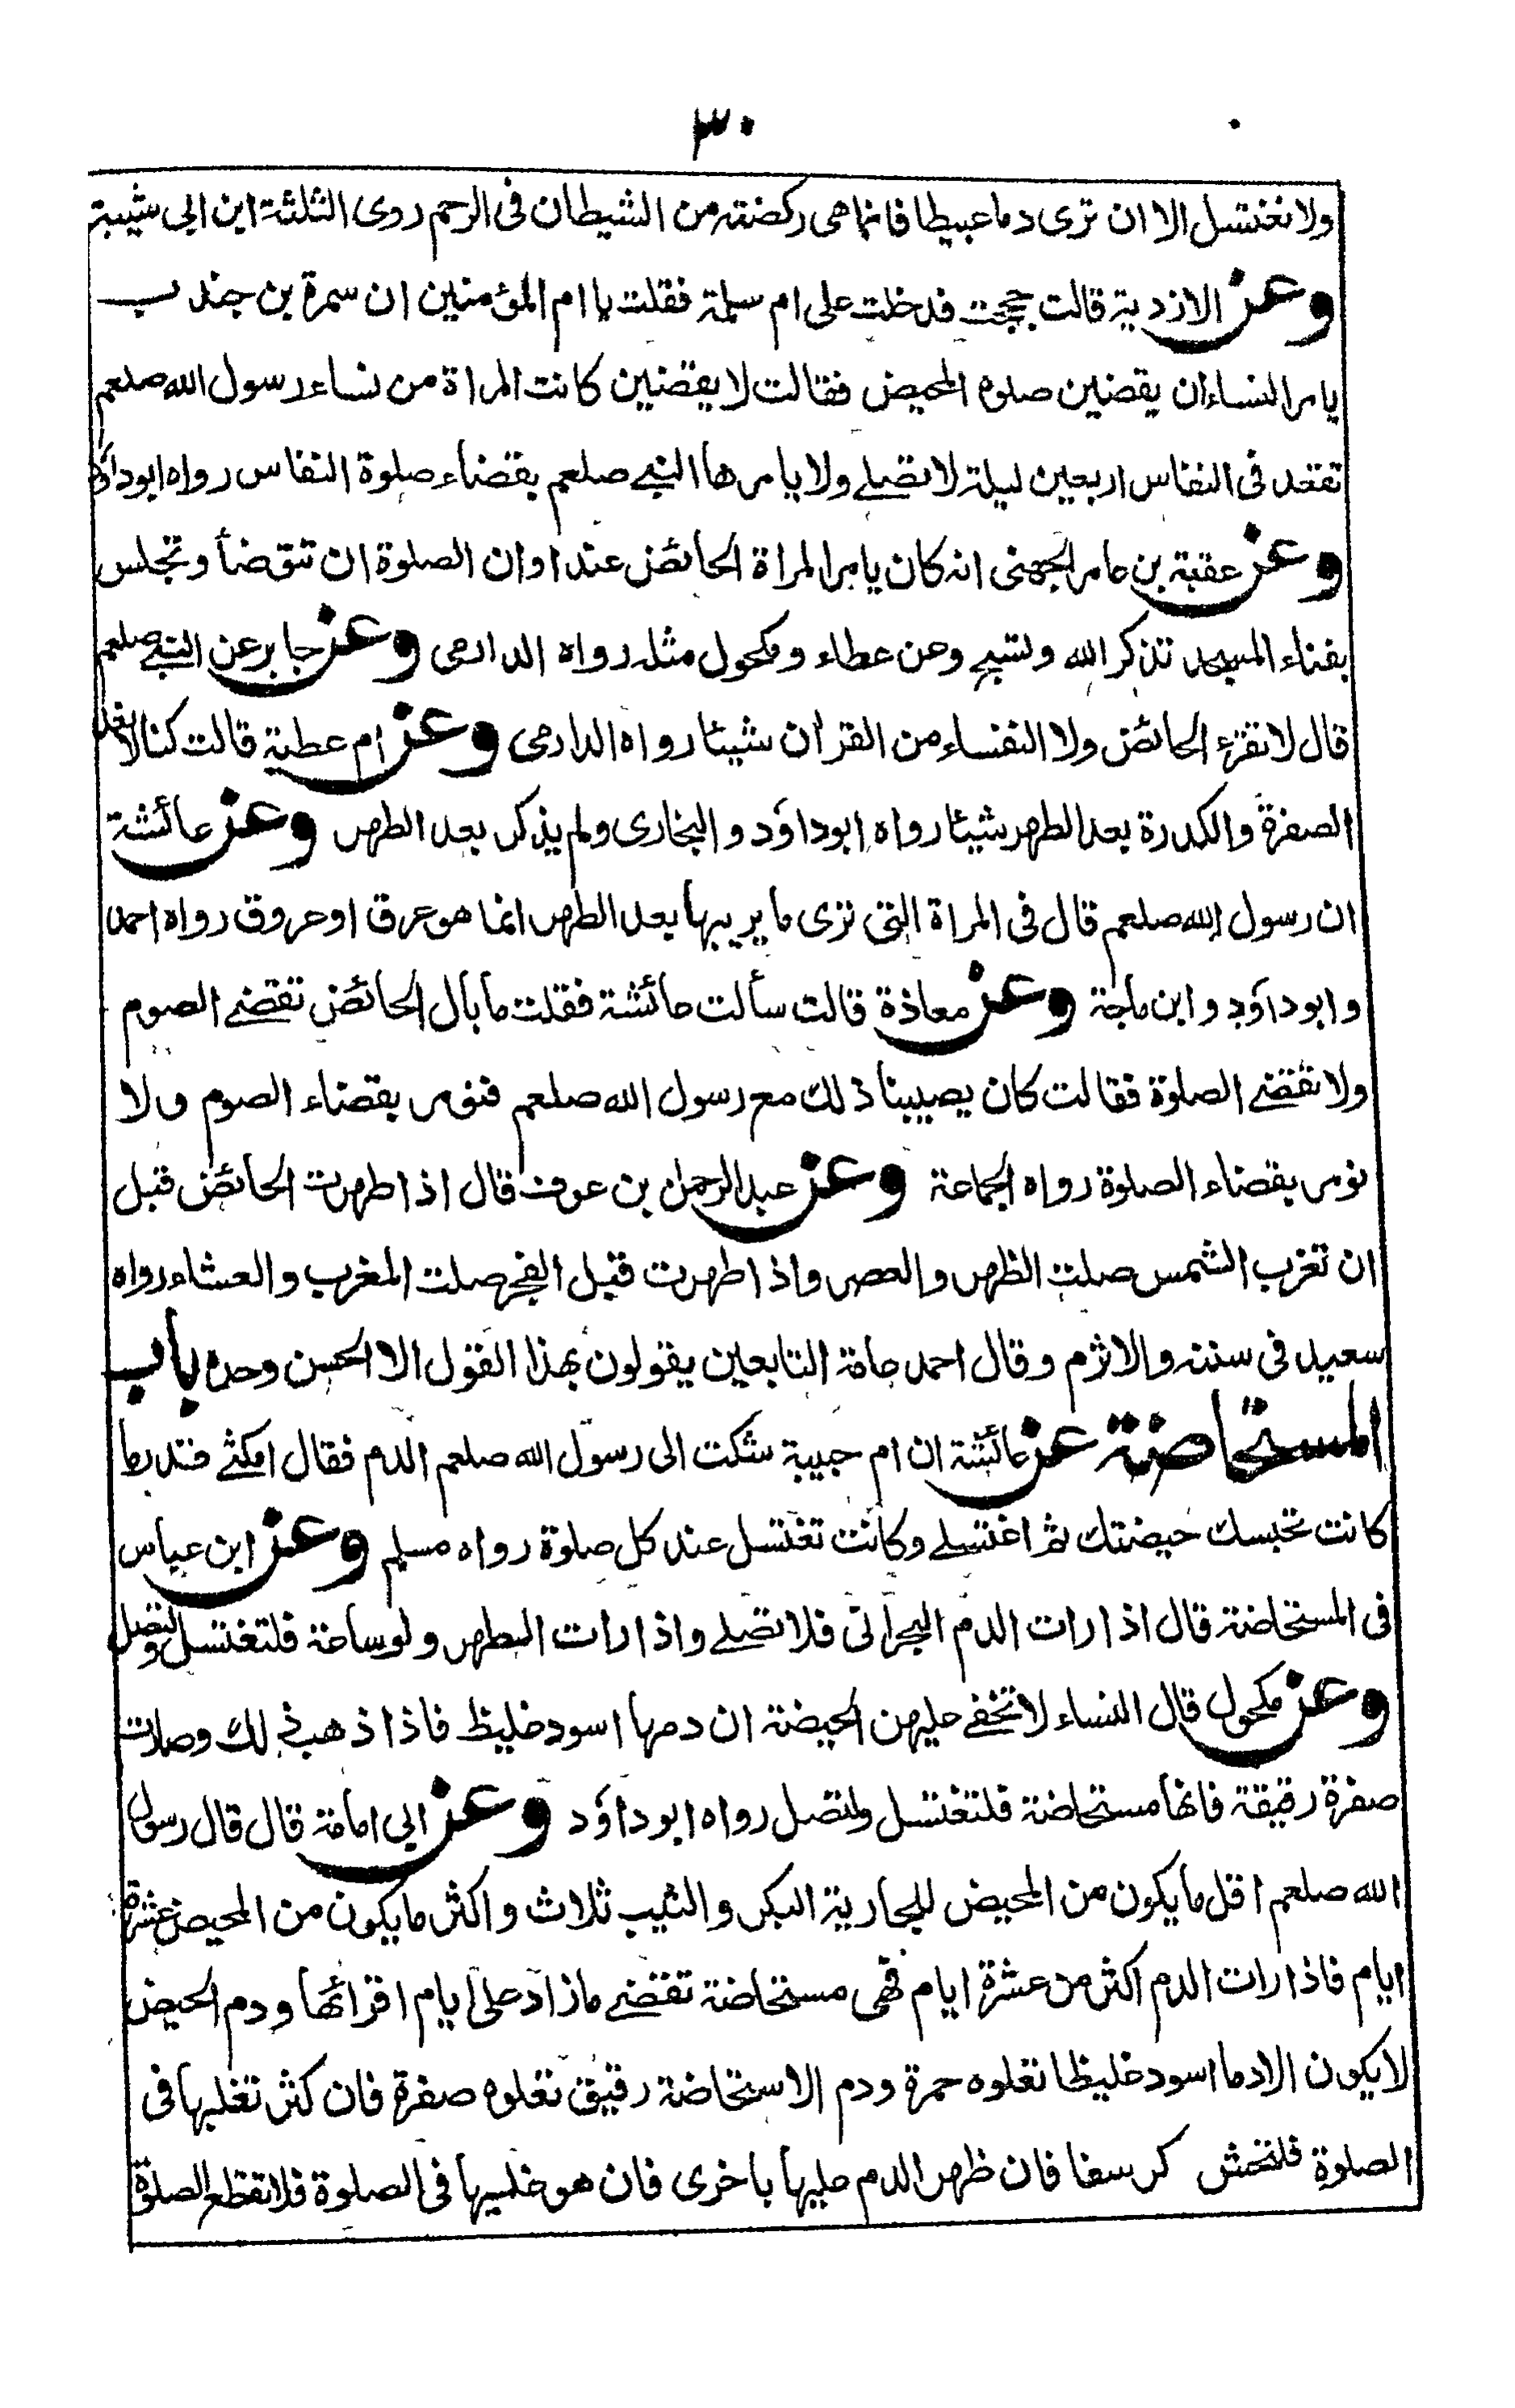 ٣٠
ولا تغتسل الا ان ترى دما عبيطا فانما هى ركضة من الشيطان فى الرحم روى الثلثة ابن ابي شيبة
وعن الازدية قالت حججت فدخلت على ام سلمة فقلت يا ام المؤمنين ان سمرة بن جندب
يامر النساء ان يقضين صلوة المحيض فقالت لا يقضين كانت المراة من نساء رسول الله صلعم
تقعد فى النفاس اربعين ليلة لا تصلے ولا يامرها النبے صلعم بقضاء صلوة النفاس رواه ابوداؤد
وعن عقبة بن عامر الجهنى انه كان يامر المراة الحائض عند اوان الصلوة ان تتوضأ وتجلس
بفناء المسجد تذكر الله وتسبح وعن عطاء ومكحول مثله رواه الدارمى وعن جابر عن النبے صلعم
قال لا تقرء الحائض ولا النفساء من القران شيئا رواه الدارمى وعن ام عطية قالت كنا لا نعد
الصفرة والكدرة بعد الطهر شيئا رواه ابوداؤد والبخارى ولم يذكر بعد الطهر وعن عائشة
ان رسول الله صلعم قال فى المراة التى ترى ما يريبها بعد الطهر انما هو عرق او عروق رواه احمد
وابوداؤد وابن ماجة وعن معاذة قالت سألت عائشة فقلت ما بال الحائض تقضے الصوم
ولا تقضے الصلوة فقالت كان يصيبنا ذلك مع رسول الله صلعم فنؤمر بقضاء الصوم ولا
نؤمر بقضاء الصلوة رواه الجماعة وعن عبد الرحمن بن عوف قال اذا طهرت الحائض قبل
ان تغرب الشمس صلت الظهر والعصر واذا طهرت قبل الفجر صلت المغرب والعشاء رواه
سعيد فى سننه والاثرم وقال احمد عامة التابعين يقولون بهذا القول الا الحسن وحده باب
المستحاضة عن عائشة ان ام حبيبة شكت الى رسول الله صلعم الدم فقال امكثے قدر ما
كانت تحبسك حيضتك ثم اغتسلے وكانت تغتسل عند كل صلوة رواه مسلم وعن ابن عباس
فى المستحاضة قال اذا رات الدم البحرانى فلا تصلے واذا رات الطهر ولو ساعة فلتغتسل وتصل
وعن مكحول قال النساء لا تخفے عليهن الحيضة ان دمها اسود غليظ فاذا ذهب ذلك وصارت
صفرة رقيقة فانها مستحاضة فلتغتسل ولتصل رواه ابوداؤد وعن ابي امامة قال قال رسول
الله صلعم اقل ما يكون من المحيض للجارية البكر والثيب ثلاث واكثر ما يكون من المحيض عشرة
ايام فاذا رات الدم اكثر من عشرة ايام فهى مستحاضة تقضے ما زاد على ايام اقرائها ودم الحيض
لا يكون الا دما اسود غليظا تعلوه حمرة ودم الاستحاضة رقيق تعلوه صفرة فان كثر تغلبها فى
الصلوة فلتحتش كرسفا فان ظهر الدم عليها باخرى فان هو غلبها فى الصلوة فلا تقطع الصلوة